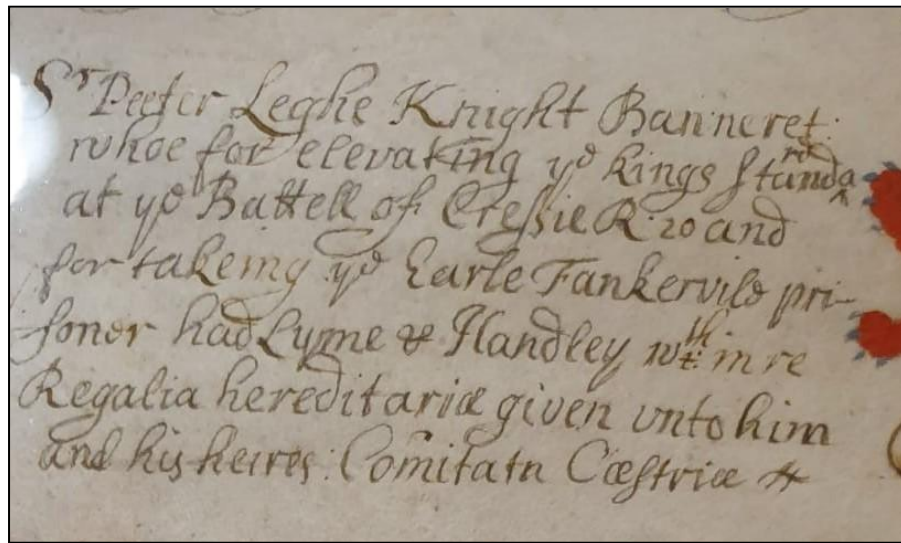 Sr Peeter Leghe Knight Banneret:
whoe for elevating ye kings standard
at ye Battell of Cressie R: 20 and
for takeing ye Earle Tankervile pri-
soner had Lyme & Handley wth: in re
Regalia hereditariæ given vnto him
and his heires: Comitatu Cæstriæ